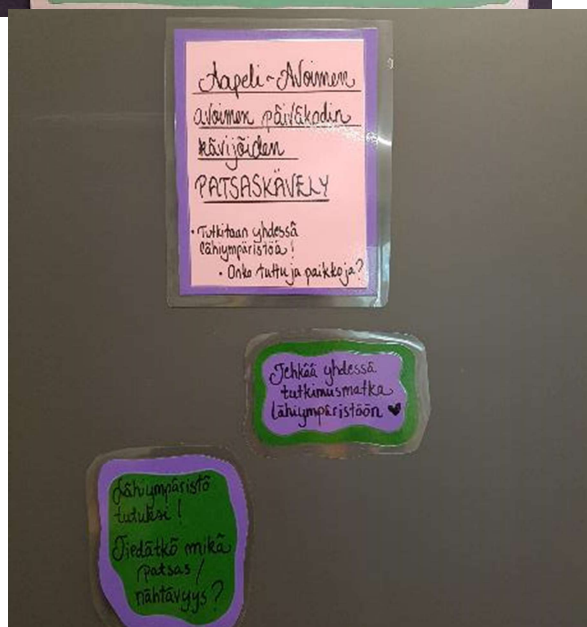 Aapeli-Avoimen
avoimen päiväkodin
kävijöiden
PATSASKÄVELY
• Tutkitaan yhdessä
lähiympäristöä!
• Onko tuttuja paikkoja?
Tehkää yhdessä
tutkimusmatka
lähiympäristöön ♥
Lähiympäristö
tutuksi!
Tiedätkö mikä
patsas /
nähtävyys?